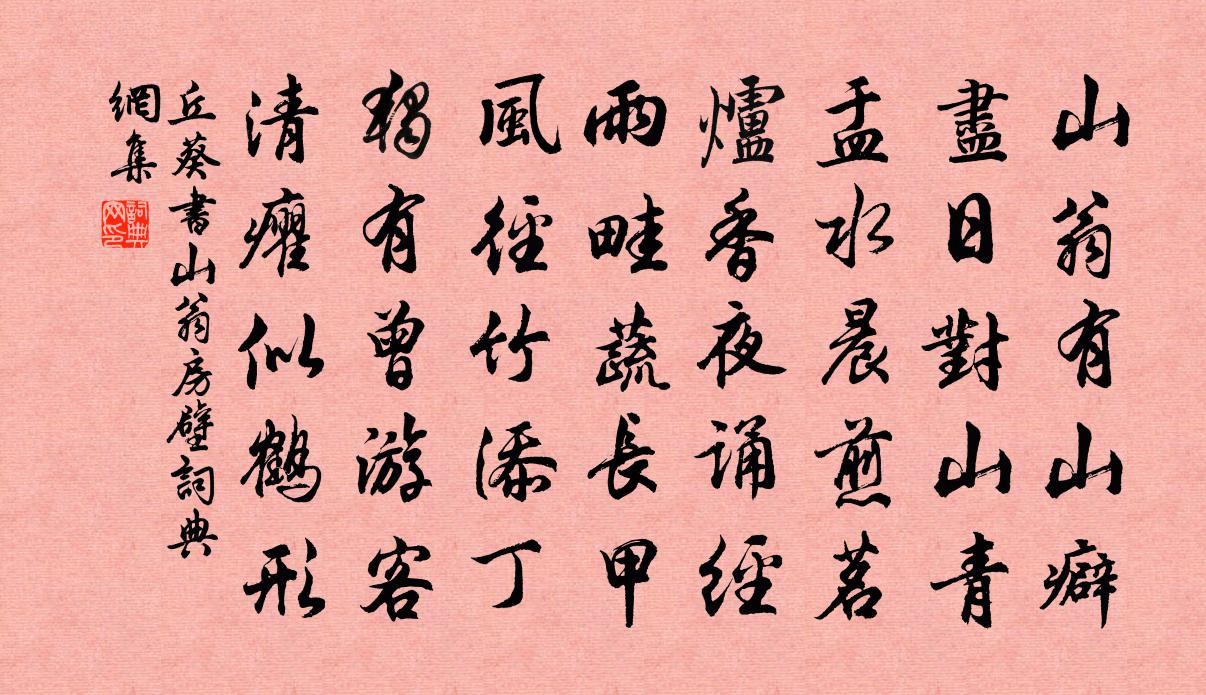 山翁有山癖
盡日對山青
盂水晨煎茗
爐香夜誦經
雨畦蔬長甲
風徑竹添丁
獨有曾游客
清癯似鶴形
丘葵書山翁房壁詞典
網集
詞典
网印